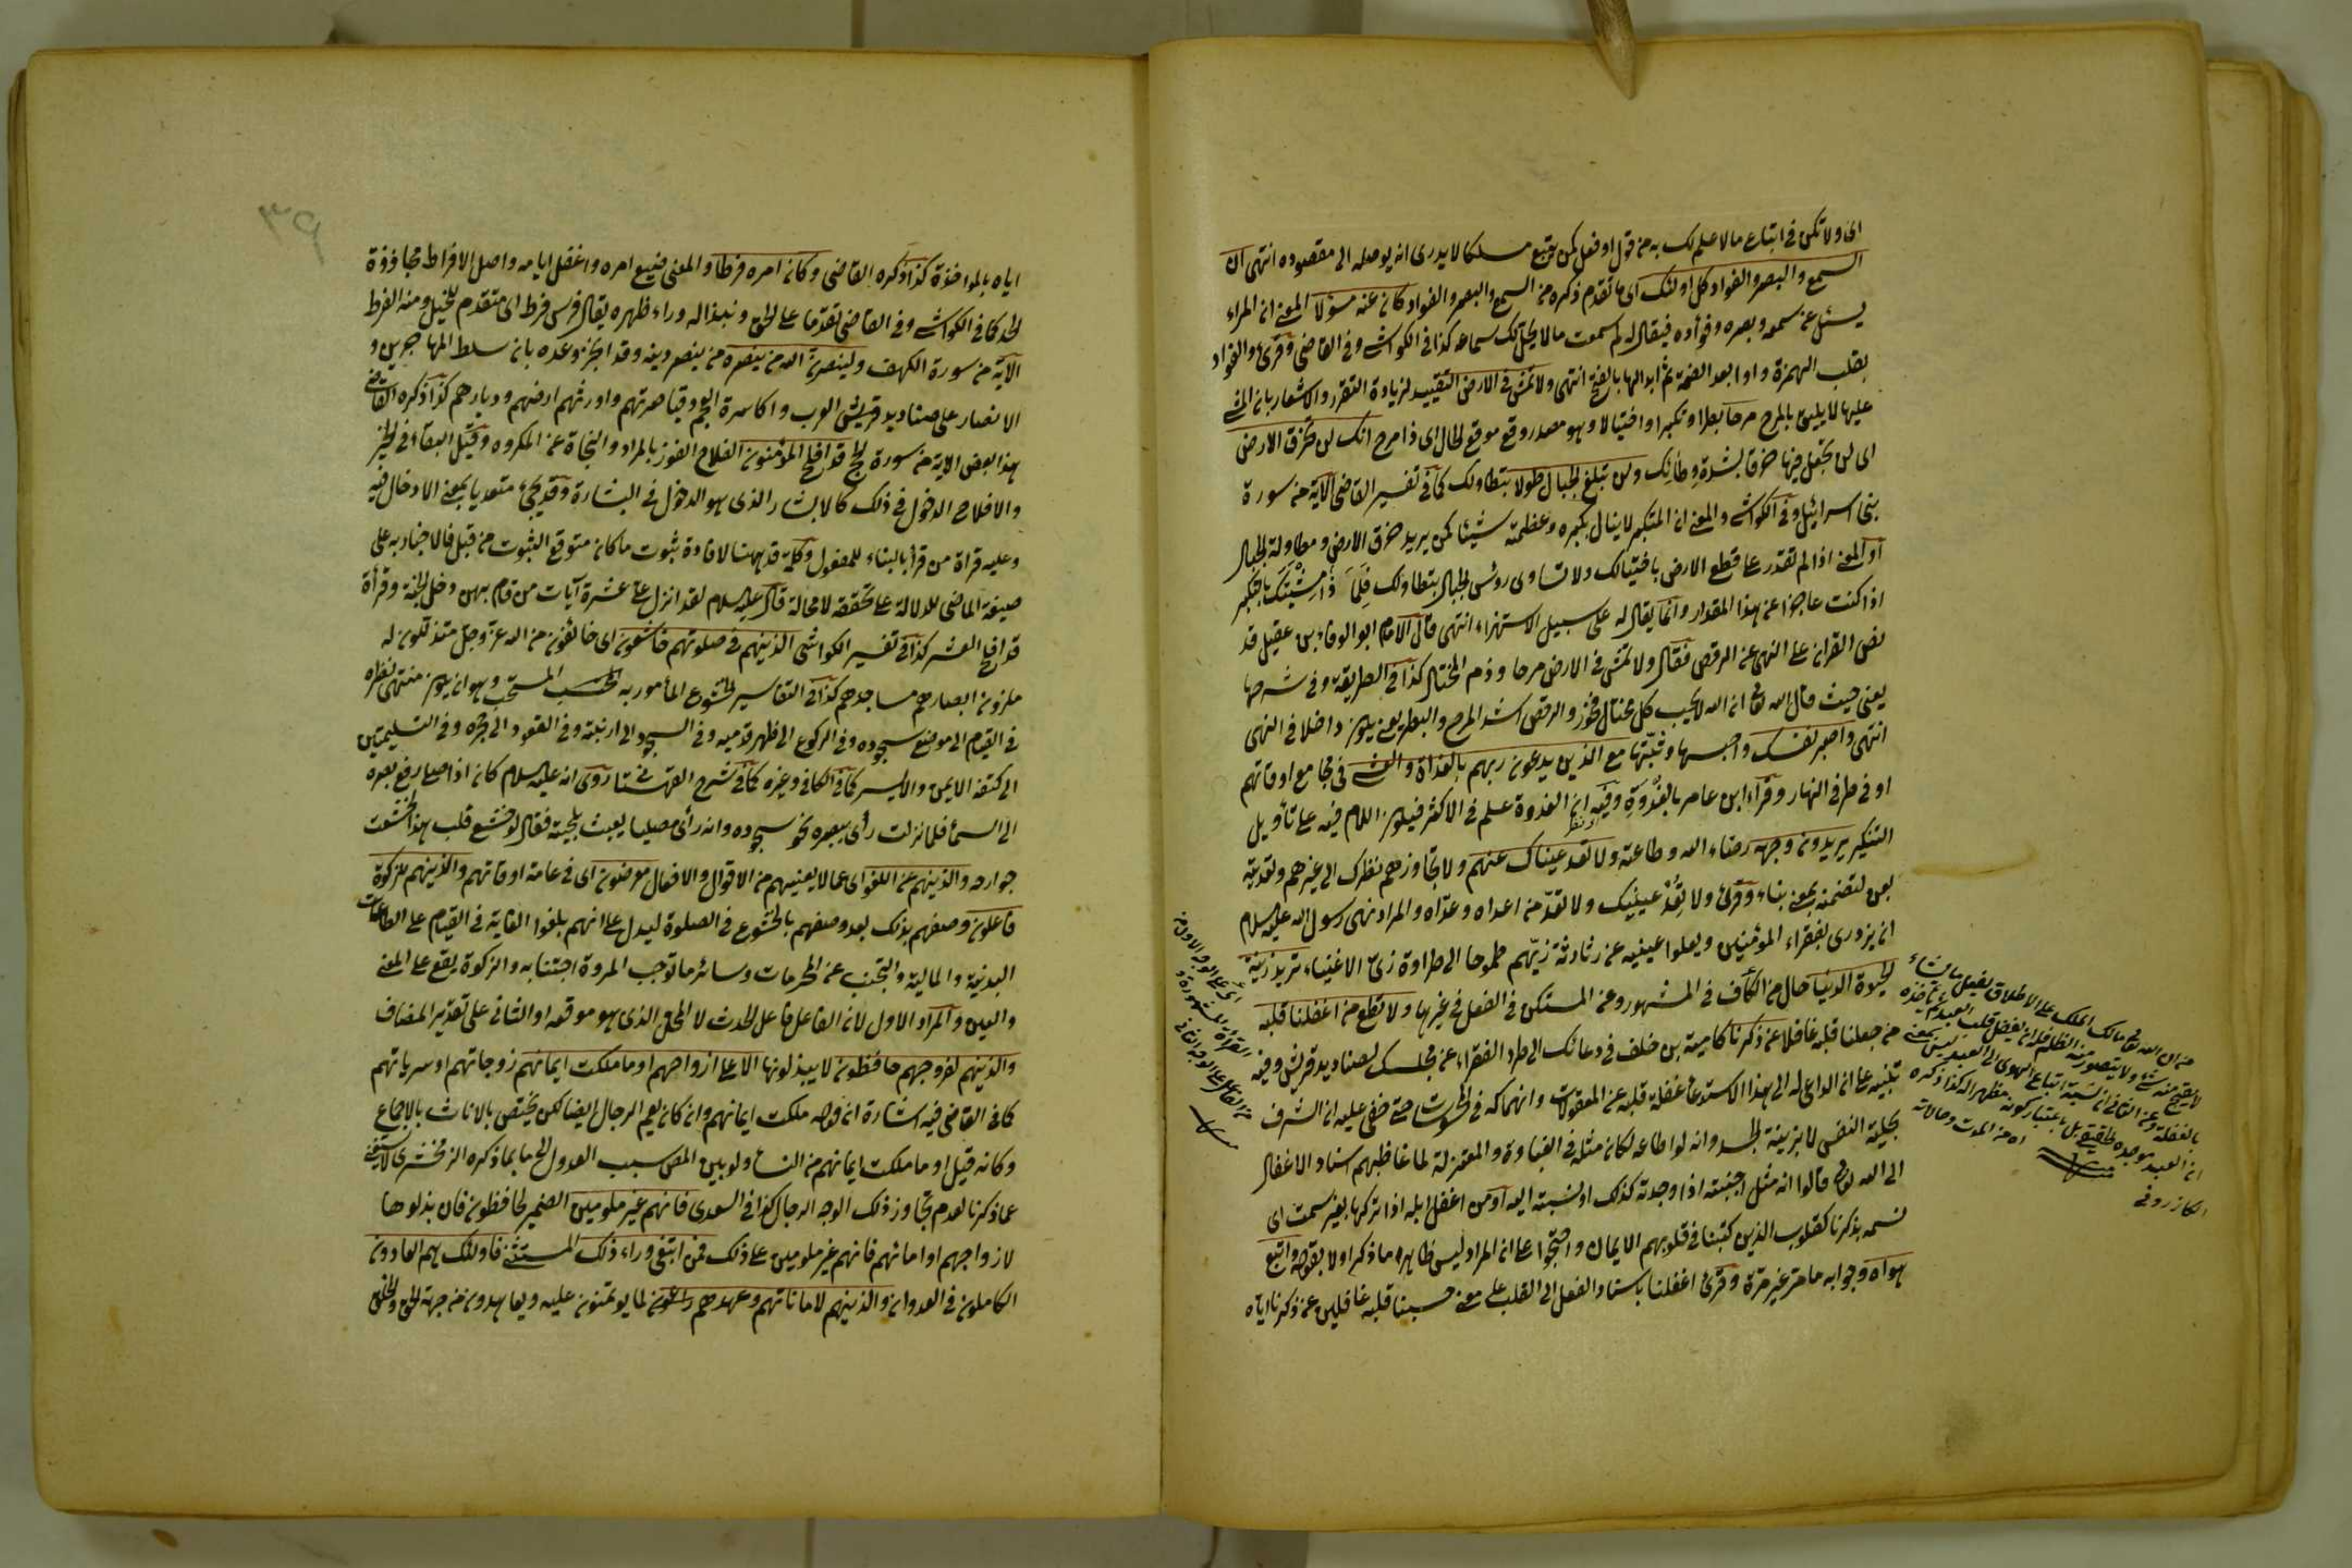 اى ولا تكن فى اتباع ما لا علم لك به من قول او فعل كمن يتبع مسلكا لا يدرى انه يوصله الى مقصوده انتهى ان
السمع والبصر والفواد كل اولئك اى ما تقدم ذكره من السمع والبصر والفواد كان عنه مسؤلا المعنى ان المراء
يسئل عن سمعه وبصره وفوأده فيقال له لم سمعت ما لا يحل لك سماعه كذا فى الكواشى وفى القاضى وقرئ والفواد
بقلب الهمزة واوا بعد الضمة ثم ابدالها بالفتح انتهى ولا تمش فى الارض التقييد لزيادة التقرر والاشعار بان المشى
عليها لا يليق بالمرح مرحا بطرا وتكبرا واختيالا وهو مصدر وقع موقع الحال اى ذا مرح انك لن تخرق الارض
اى لن تجعل فيها خرقا بشدة وطائك ولن تبلغ الجبال طولا بتطاولك كما فى تفسير القاضى الاية من سورة
بنى اسرائيل وفى الكواشى والمعنى ان المتكبر لا ينال بكبره وعظمته شيئا كمن يريد خرق الارض ومطاولة الجبال
او المعنى اذا لم تقدر على قطع الارض باختيالك ولا تساوى رؤس الجبال بتطاولك فلم ذا مشيتك بالتكبر
اذا كنت عاجزا عن هذا المقدار وانما يقال له على سبيل الاستهزاء انتهى قال الامام ابو الوفاء بن عقيل قد
نص القران على النهى عن الرقص فقال ولا تمش فى الارض مرحا وذم المختال كذا فى الطريقة وفى شرحها
يعنى حيث قال الله تعالى ان الله لا يحب كل مختال فخور والرقص اشد المرح والبطر يعنى يكون داخلا فى النهى
انتهى واصبر نفسك واحبسها وثبتها مع الذين يدعون ربهم بالغداة والعشى فى مجامع اوقاتهم
او فى طرفى النهار وقرأ ابن عامر بالغدوة وفيه ان الغدوة علم فى الاكثر فيكون اللام فيه على تأويل
التنكير يريدون وجهه رضاء الله وطاعته ولا تعد عيناك عنهم ولا تجاوزهم نظرك الى غيرهم وتعديته
بعن لتضمنه معنى نباء وقرئ ولا تعد عينيك ولا تعد من اعداه وعداه والمراد نهى رسول الله عليه السلام
ان يزدرى بفقراء المؤمنين ويعلوا عينيه عن رثاثة زيهم طموحا الى طراوة زى الاغنياء تريد زينة
الحيوة الدنيا حال من الكاف فى المشهور وعن المستكن فى الفعل فى غيرها ولا تطع من اغفلنا قلبه
من جعلنا قلبه غافلا عن ذكرنا كامية بن خلف فى دعائك الى طرد الفقراء عن مجلسك لصناديد قريش وفيه
تنبيه على ان الداعى له الى هذا الاستدعا غفلة قلبه عن المعقولات وانهماكه فى المحسوسات حتى خفى عليه ان الشرف
بحلية النفس لا بزينة الجسد وانه لو اطاعه لكان مثله فى الغباوة والمعتزلة لما غاظهم اسناد الاغفال
الى الله تعالى قالوا انه مثل اجبنته اذا وجدته كذلك او نسبته اليه او من اغفل ابله اذا تركها بغير سمت اى
نسمه بذكرنا كقلوب الذين كتبنا فى قلوبهم الايمان واحتجوا على ان المراد ليس ظاهره ما ذكر اولا بقوله واتبع
هواه وجوابه ما مر غير مرة وقرئ اغفلنا باسناد الفعل الى القلب على معنى حسبنا قلبه غافلين عن ذكرنا اياه
من ان الله تعالى مالك الملك على الاطلاق يفعل ما يشاء
لا يقبح منه شئ ولا يتصور منه الظلم
ان العبد موجده الحقيقى بل باعتبار كونه مظهرا له كذا ذكره
الكازرونى
٣٩
اياه بالمواخذة كذا ذكره القاضى وكان امره فرطا والمعنى ضيع امره واغفل ايامه واصل الافراط مجاوزة
الحد كما فى الكواشى وفى القاضى تقدما على الحق ونبذا له وراء ظهره يقال فرس فرط اى متقدم للخيل ومنه الفرط
الاية من سورة الكهف ولينصرن الله من ينصره من ينصر دينه وقد انجز وعده بان سلط المهاجرين و
الانصار على صناديد قريش العرب واكاسرة العجم وقياصرتهم واورثهم ارضهم وديارهم كذا ذكره القاضى
هذا بعض الاية من سورة الحج قد افلح المؤمنون الفلاح الفوز بالمراد والنجاة عن المكروه وقيل البقاء فى الخير
والافلاح الدخول فى ذلك كالابشار الذى هو الدخول فى البشارة وقد يجئ متعديا بمعنى الادخال فيه
وعليه قراة من قرأ بالبناء للمفعول وكلمة قد ههنا لافادة ثبوت ما كان متوقع الثبوت من قبل فالاخبار به على
صيغة الماضى للدلالة على تحققه لا محالة قال عليه السلام لقد انزل على عشرة آيات من قام بهن دخل الجنة وقرأ
قد افلح العشر كذا فى تفسير الكواشى الذينهم فى صلوتهم خاشعون اى خائفون من الله عز وجل متذللون له
ملزمون ابصارهم مساجدهم كذا فى التفاسير الخشوع المأمور به المستحب وهو ان يكون منتهى نظره
فى القيام الى موضع سجوده وفى الركوع الى ظهر قدميه وفى السجود الى ارنبته وفى القعود الى حجره وفى التسليمتين
الى كتفه الايمن والايسر كما فى الكافى وغيره كما فى شرح القهستانى روى انه عليه السلام كان اذا صلى رفع بصره
الى السماء فلما نزلت رأى ببصره نحو سجوده وانه رأى مصليا يعبث بلحيته فقال لو خشع قلب هذا لخشعت
جوارحه والذينهم عن اللغو اى عما لا يعنيهم من الاقوال والافعال معرضون اى فى عامة اوقاتهم والذينهم للزكوة
فاعلون وصفهم بذلك بعد وصفهم بالخشوع فى الصلوة ليدل على انهم بلغوا الغاية فى القيام على الطاعات
البدنية والمالية والتجنب عن المحرمات وسائر ما توجب المروة اجتنابه والزكوة يقع على المعنى
والعين والمراد الاول لان الفاعل فاعل الحدث لا المحل الذى هو موقعه او الثانى على تقدير المضاف
والذينهم لفروجهم حافظون لا يبذلونها الا على ازواجهم او ما ملكت ايمانهم زوجاتهم او سرياتهم
كما فى القاضى فيه اشارة ان قوله ملكت ايمانهم وان كان يعم الرجال ايضا لكن يختص بالاناث بالاجماع
وكانه قيل او ما ملكت ايمانهم من النساء ولو بين المص سبب العدول الى ما بما ذكره الزمخشرى لاستغنى
عما ذكرنا لعدم تجاوز ذلك الوجه الرجال كذا فى السعدى فانهم غير ملومين الضمير لحافظون فان بذلوها
لازواجهم او امائهم فانهم غير ملومين على ذلك فمن ابتغى وراء ذلك المستثنى فاولئك هم العادون
الكاملون فى العدوان والذينهم لاماناتهم وعهدهم راعون لما يؤتمنون عليه ويعاهدون من جهة الحق والخلق